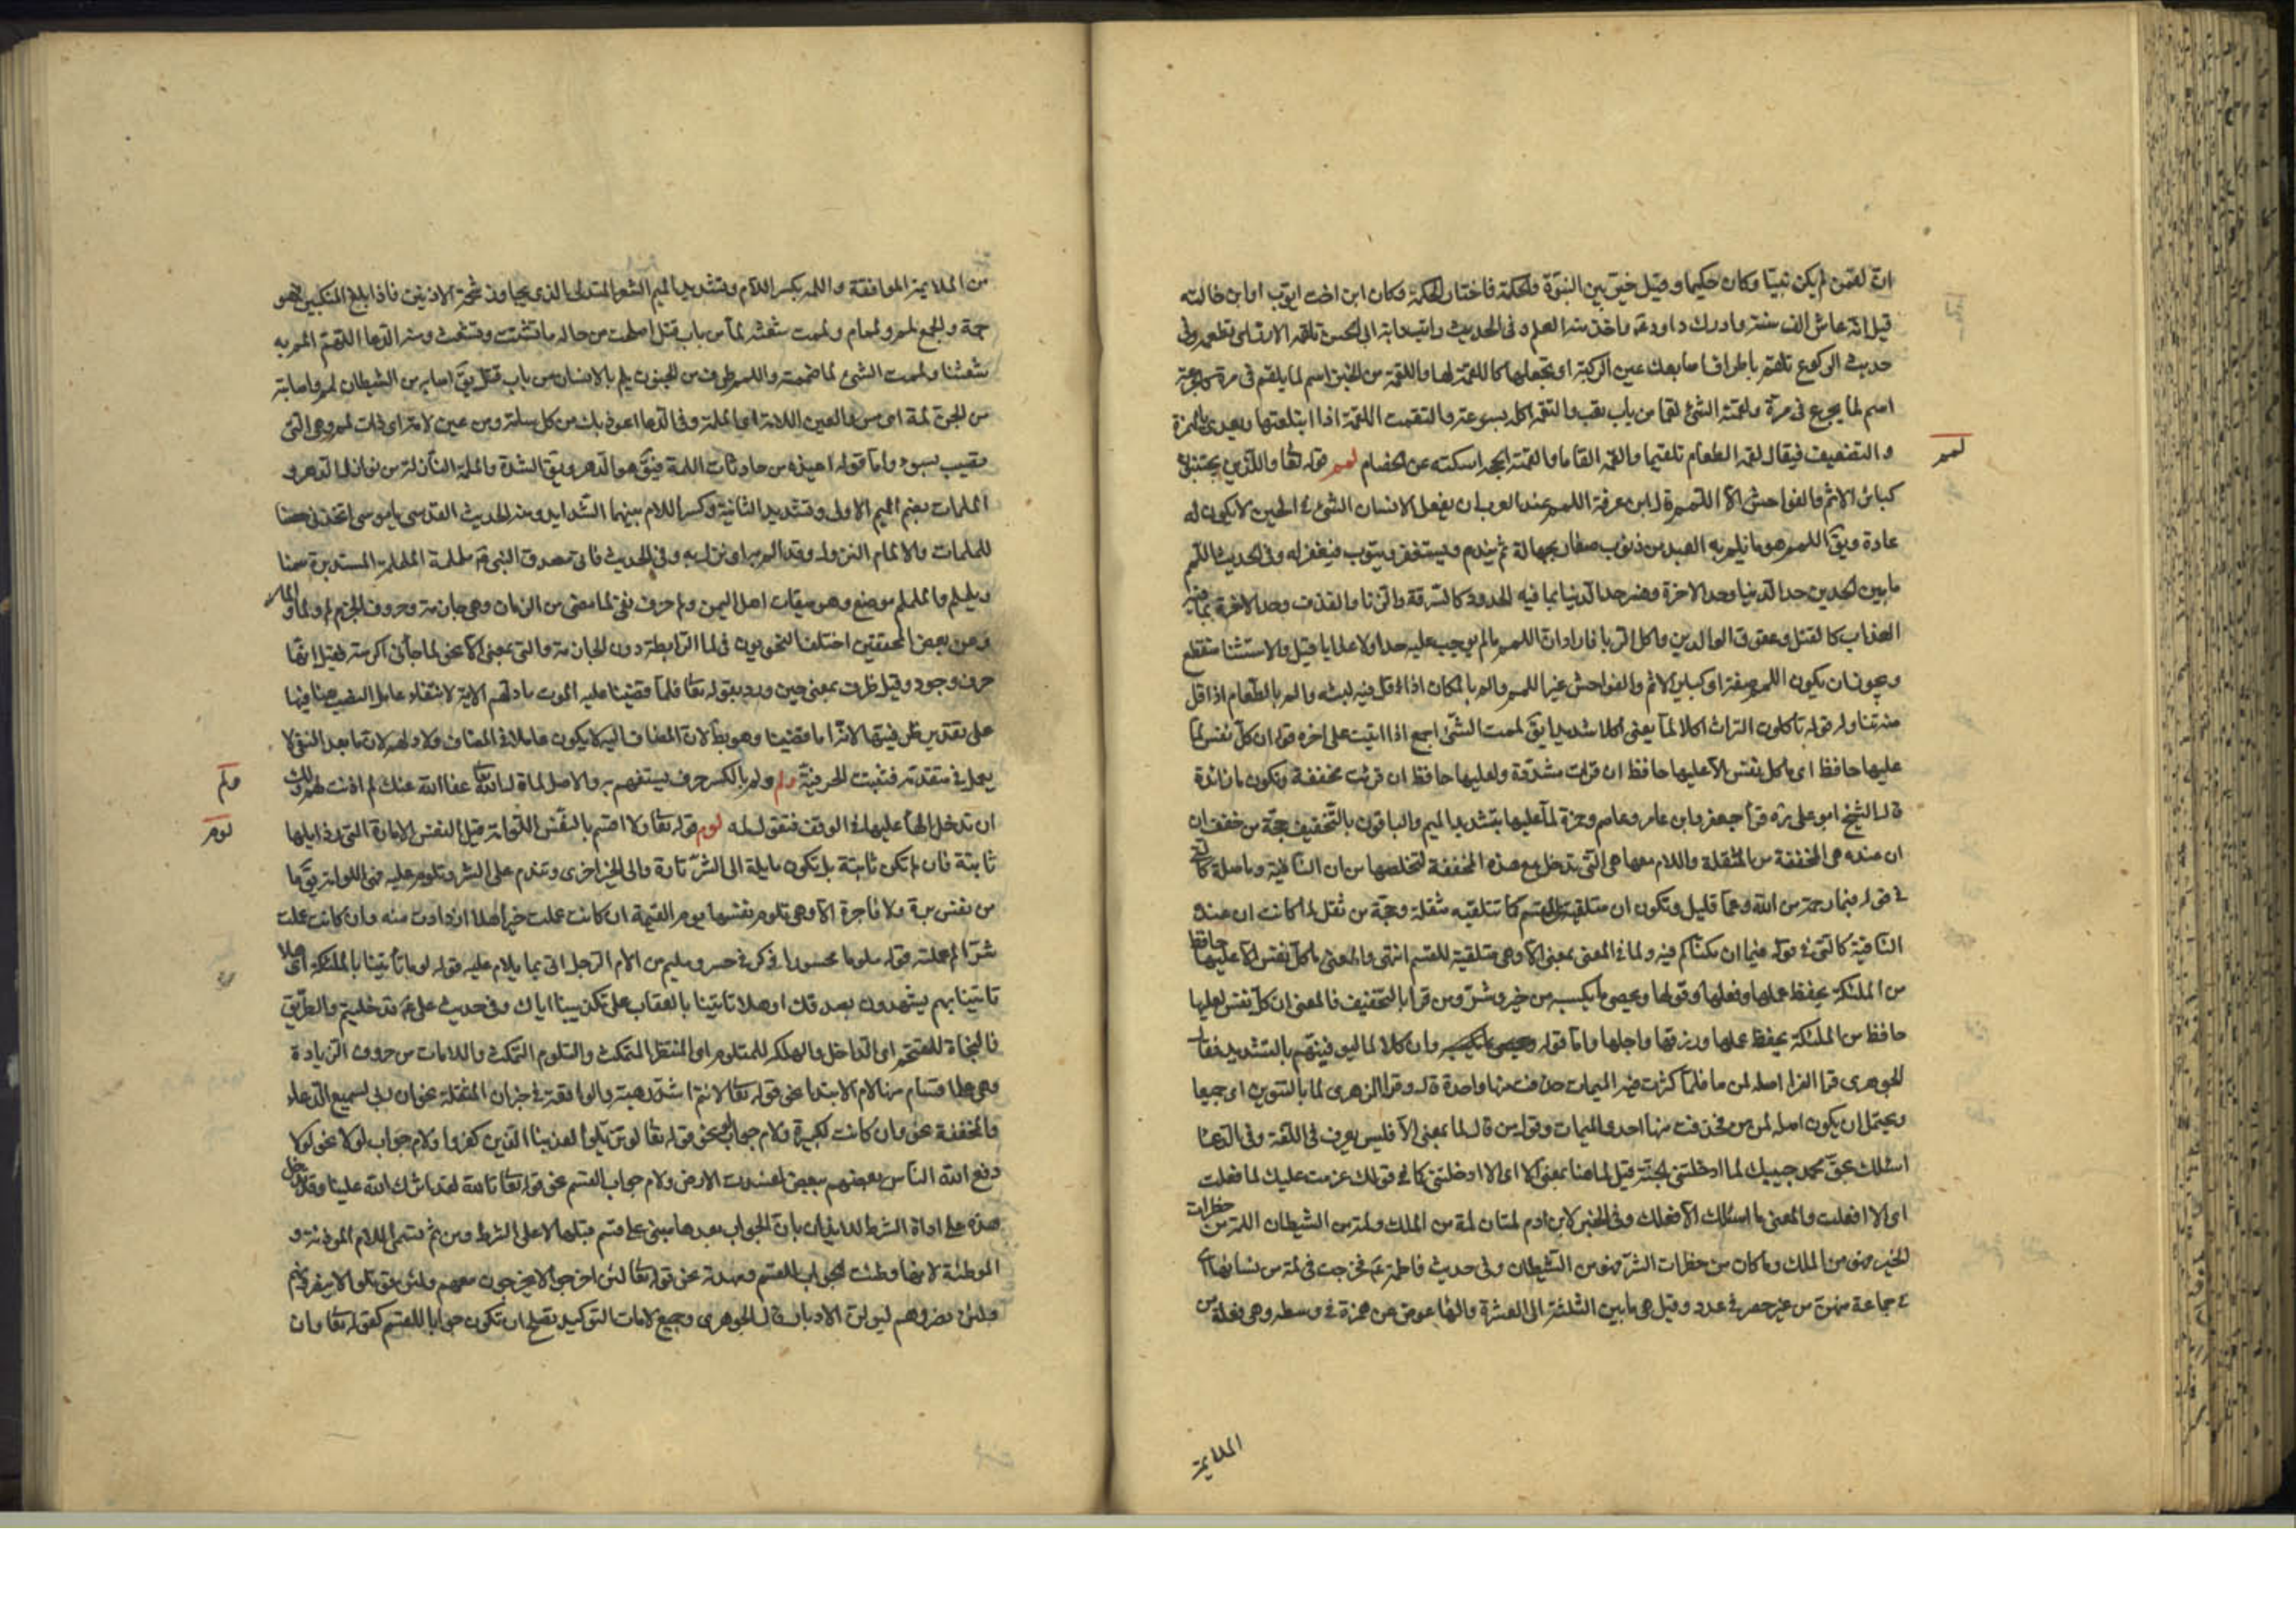 ان لقمن لم يكن نبيا وكان حكيما وقيل خير بين النبوة والحكمة فاختار الحكمة وكان ابن اخت ايوب او ابن خالته
قيل انه عاش الف سنة وادرك داود ع واخذ منه العلم وفى الحديث
حديث الركوع تلقم باطراف اصابعك عين الركبة اى تجعلها كاللقمة لها واللقمة من الخبز اسم لما يلقم فى مرة كالجرعة
اسم لما يجرع فى مرة ولقمت الشئ لقما من باب تعب والتقمه اكله بسرعة والتقمت اللقمة اذا ابتلعتها ويعدى بالهمزة
والتضعيف فيقال لقمه الطعام تلقيما والقمه القاما والقمته الحجر اسكته عن الخصام لمم قوله تعا والذين يجتنبون
كبائر الاثم والفواحش الا اللمم قال ابن عرفة اللمم عند العرب ان يفعل الانسان الشئ فى الحين لا يكون له
عادة ويق اللمم هو ما يلم به العبد من ذنوب صغار بجهالة ثم يندم ويستغفر ويتوب فيغفر له وفى الحديث اللمم
ما بين الحدين حد الدنيا وحد الاخرة وفسر حد الدنيا بما فيه الحدود كالسرقة والزنا والقذف وحد الاخرة بما فيه
العذاب كالقتل وعقوق الوالدين واكل الربا فاراد ان اللمم ما لم يوجب عليه حدا ولا عذابا قيل والاستثنا منقطع
ويجوز ان يكون اللمم صفة اى كباير الاثم والفواحش غير اللمم والم بالمكان اذا قل فيه لبثه والم بالطعام اذا قل
منه تناوله قوله تاكلون التراث اكلا لما يعنى اكلا شديدا يق لممت الشئ اجمع اذا اتيت على اخره قوله ان كل نفس لما
عليها حافظ اى ما كل نفس الا عليها حافظ ان قرئت مشددة ولعليها حافظ ان قرئت مخففة وتكون ما زائدة
قال الشيخ ابو على ره قرأ ابو جعفر وابن عامر وعاصم وحمزة لما عليها بتشديد الميم والباقون بالتخفيف حجة من خفف ان
ان عنده هى المخففة من المثقلة واللام معها هى التى تدخل مع هذه المخففة لتخلصها من ان النافية وما صلة كالتى
فى قوله فبما رحمة من الله وعما قليل وتكون ان متلقية للقسم كما تتلقيه مثقلة وحجة من ثقل لما كانت ان عنده
النافية كالتى فى قوله فيما ان مكناكم فيه ولما فى المعنى بمعنى الا وهى متلقية للقسم انتهى والمعنى ما كل نفس الا عليها حافظ
من الملئكة يحفظ عملها وفعلها وقولها ويحصى ما يكسبه من خير وشر ومن قرا بالتخفيف فالمعنى ان كل نفس لعليها
حافظ من الملئكة يحفظ عملها ورزقها واجلها واما قوله وان كلا لما ليوفينهم بالتشديد فقال
الجوهرى قرا الفرا اصله لمن ما فلما كثرت فيه الميمات حذفت منها واحدة قال وقرا الزهرى لما بالتنوين اى جميعا
ويحتمل ان يكون اصله لمن من فحذفت منها احدى الميمات وقول من قال لما بمعنى الا فليس يعرف فى اللغة وفى الدعا
اسئلك بحق محمد حبيبك لما ادخلتنى الجنة قيل لما هنا بمعنى الا اى الا ادخلتنى كما فى قولك عزمت عليك لما فعلت
اى الا فعلت والمعنى ما اسئلك الا فعلك وفى الخبر لابن ادم لمتان لمة من الملك ولمة من الشيطان اللمة من خطرات
الخير فهو من الملك وما كان من خطرات الشر فهو من الشيطان وفى حديث فاطمة ع فخرجت فى لمة من نسائها اى
فى جماعة منهن من غير حصر فى عدد وقيل هى ما بين الثلثة الى العشرة والها عوض عن همزة فى وسطه وهى فعلة من
الملايمة
لمم
من الملايمة الموافقة واللمه بكسر اللام وتشديد الميم الشعر المتدلى الذى يجاوز شحمة الاذنين فاذا بلغ المنكبين فهو
جمة والجمع لمم ولمام ولممت شعثه لما من باب قتل اصلحت من حاله ما تشتت وتشعث ومنه الدعا اللهم المم به
شعثنا ولممت الشئ لما ضممته واللمم طرف من الجنون يلم بالانسان من باب قتل يق اصابه من الشيطان لمم واصابته
من الجن لمة اى مس والعين اللامة اى الملمة وفى الدعا اعوذ بك من كل سامة ومن عين لامة اى ذات لمم وهى التى
تصيب بسوء واما قوله اعيذه من حادثات اللمة فيق هو الدهر ويق الشدة والملمة النازلة من نوازل الدهر و
الملمات بضم الميم الاولى وتشديد الثانية وكسر اللام بينهما الشدايد ومنه الحديث القدسى يا موسى اتخذنى حصنا
للملمات والالمام النزول وقد الم به اى نزل به وفى الحديث فاتى مصدق النبى ص بململمة الململمة المستديرة سمنا
ويلملم والملم موضع وهو ميقات اهل اليمن ولم حرف نفى لما مضى من الزمان وهى جازمة وحروف الجزم لم ولما والما
وعن بعض المحققين اختلف النحويون فى لما الرابطة دون الجازمة والتى بمعنى الا نحو لما جائنى اكرمته فقيل انها
حرف وجود وقيل ظرف بمعنى حين ورد بقوله تعا فلما قضينا عليه الموت ما دلهم الاية لانتفاء عامل النصب هنا فيها
على تقدير ظرفيتها لانه اما قضينا وهو بط لان المضاف اليه لا يكون عاملا فى المضاف ولا دلهم لان ما بعد النفى لا
يعمل فى متقدمه فثبت الحرفية ولم ولم بالكسر حرف يستفهم به والاصل لما قال الله تعا عفا الله عنك لم اذنت لهم ولك
ان تدخل الها عليها فى الوقف فتقول لمه لوم قوله تعا ولا اقسم بالنفس اللوامة قيل النفس الامارة التى رذايلها
ثابتة فان لم تكن ثابتة بل تكون مايلة الى الشر تارة والى الخير اخرى وتندم على الشر وتلوم عليه فهى اللوامة يق ما
من نفس برة ولا فاجرة الا وهى تلوم نفسها يوم القيمة ان كانت عملت خيرا هلا ازدادت منه وان كانت عملت
شرا لم عملته قوله ملوما محسورا ذكر فى حسر ومليم من الام الرجل اتى بما يلام عليه قوله لو ما تأتينا بالملئكة اى هلا
تاتينا بهم يشهدون بصدقك او هلا تاتينا بالعقاب على تكذيبنا اياك وفى حديث على ع
فالنجاة للمقتحم اى الداخل والهلكه للمتلوم اى المنتظر المتمكث والتلوم التمكث واللامات من حروف الزيادة
وهى على اقسام منها لام الابتدا نحو قوله تعا لانتم اشد رهبة والواقعة فى خبر ان المثقلة نحو ان ربى لسميع الدعاء
والمخففة نحو وان كانت لكبيرة ولام جواب لو نحو قوله تعا لو تزيلوا لعذبنا الذين كفروا ولام جواب لولا نحو لولا
دفع الله الناس بعضهم ببعض لفسدت الارض ولام جواب القسم نحو قوله تعا تالله لقد اثرك الله علينا وقد تدخل
هذه على اداة الشرط للايذان بان الجواب بعدها مبنى على قسم قبلها لا على الشرط ومن ثم تسمى اللام الموذنة و
الموطئة لانها وطئت الجواب للقسم ومهدته نحو قوله تعا لئن اخرجوا لا يخرجون معهم ولئن قوتلوا لا ينصرونهم
ولئن نصروهم ليولن الادبار قال الجوهرى وجميع لامات التوكيد تصلح ان تكون جوابا للقسم كقوله تعا وان
ولم
لوم